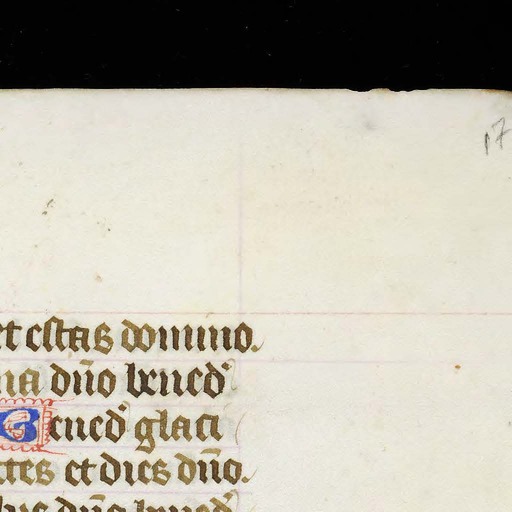 17
et estas domino.
ma dño bened̄
Bened̄ glaci
ctes et dies dño.
bus dño bened̄